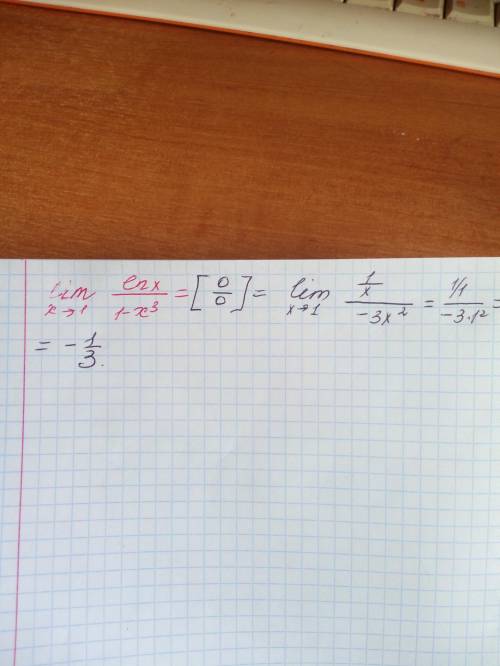 lim x→1 ln x / 1-x³ = [0/0] = lim x→1 1/x / -3x² = 1/1 / -3·1² =
= - 1/3.